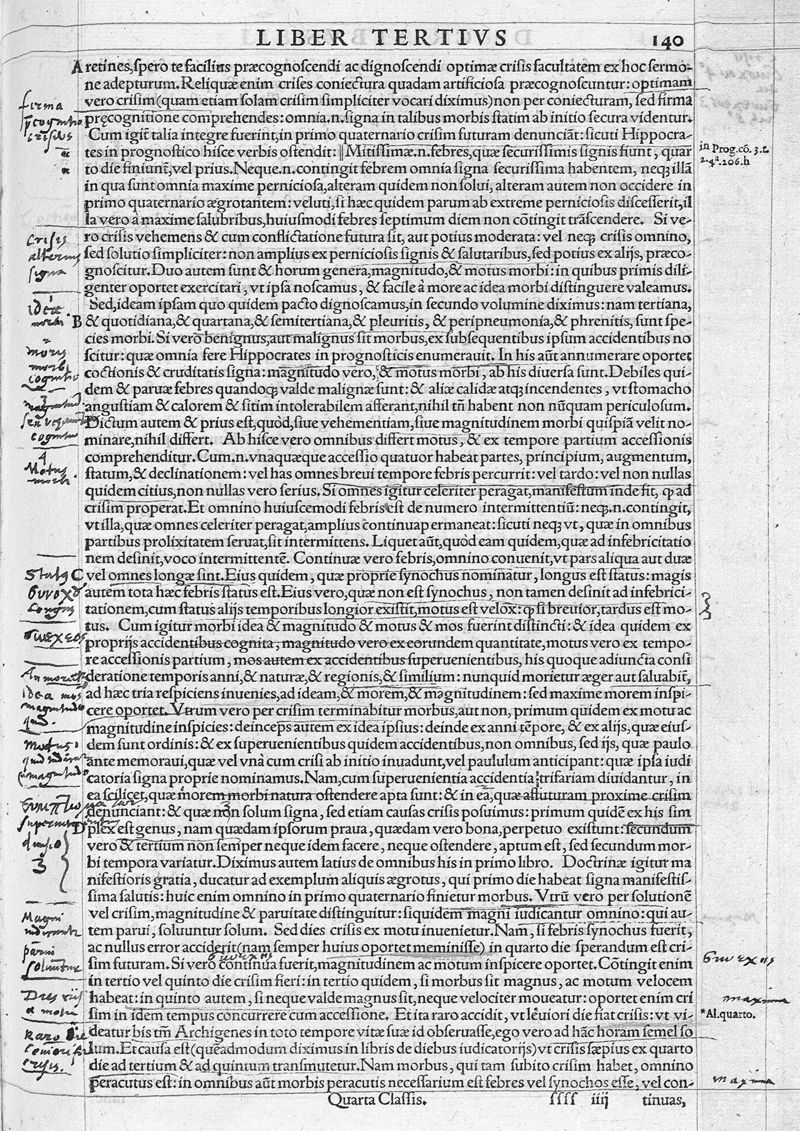 LIBER TERTIVS 140
A retines, spero te facilius præcognoscendi ac dignoscendi optimæ crisis facultatem ex hoc sermo-
ne adepturum. Reliquæ enim crises coniectura quadam artificiosa præcognoscuntur: optimam
vero crisim (quam etiam solam crisim simpliciter vocari diximus) non per coniecturam, sed firma
pręcognitione comprehendes: omnia.n.signa in talibus morbis statim ab initio secura videntur.
Cum igit̃ talia integre fuerint, in primo quaternario crisim futuram denunciãt: sicuti Hippocra-
tes in prognostico hisce verbis ostendit: ‖Mitissimæ.n.febres, quæ securissimis signis fiunt, quar
to die finiunt̃, vel prius. Neque.n.contingit febrem omnia signa securissima habentem, neqꝫ illã
in qua sunt omnia maxime perniciosa, alteram quidem non solui, alteram autem non occidere in
primo quaternario ægrotantem: veluti, si hæc quidem parum ab extreme perniciosis discesserit, il
la vero à maxime salubribus, huiusmodi febres septimum diem non cõtingit trãscendere. Si ve-
ro crisis vehemens & cum conflictatione futura sit, aut potius moderata: vel neqꝫ crisis omnino,
sed solutio simpliciter: non amplius ex perniciosis signis & salutaribus, sed potius ex alijs, præco-
gnoscitur. Duo autem sunt & horum genera, magnitudo, & motus morbi: in quibus primis dili-
genter oportet exercitari, vt ipsa noscamus, & facile à more ac idea morbi distinguere valeamus.
Sed, ideam ipsam quo quidem pacto dignoscamus, in secundo volumine diximus: nam tertiana,
B & quotidiana, & quartana, & semitertiana, & pleuritis, & peripneumonia, & phrenitis, sunt spe-
cies morbi. Si vero benignus, aut malignus sit morbus, ex subsequentibus ipsum accidentibus no
scitur: quæ omnia fere Hippocrates in prognosticis enumerauit. In his aũt annumerare oportet
coctionis & cruditatis signa: magnitudo vero, & motus morbi, ab his diuersa sunt. Debiles qui-
dem & paruæ febres quandoqꝫ valde malignæ sunt: & aliæ calidæ atqꝫ incendentes, vt stomacho
angustiam & calorem & sitim intolerabilem afferant, nihil tñ habent non nũquam periculosum.
Dictum autem & prius est, quòd, siue vehementiam, siue magnitudinem morbi quispiã velit no-
minare, nihil differt. Ab hisce vero omnibus differt motus, & ex tempore partium accessionis
comprehenditur. Cum.n.vnaquæque accessio quatuor habeat partes, principium, augmentum,
statum, & declinationem: vel has omnes breui tempore febris percurrit: vel tardo: vel non nullas
quidem citius, non nullas vero serius. Si omnes igitur celeriter peragat, manifestum inde fit, ꝙ ad
crisim properat. Et omnino huiuscemodi febris est de numero intermittentiũ: neqꝫ.n.contingit,
vt illa, quæ omnes celeriter peragat, amplius continua permaneat: sicuti neqꝫ vt, quæ in omnibus
partibus prolixitatem seruat, sit intermittens. Liquet aũt, quòd eam quidem, quæ ad infebricitatio
nem desinit, voco intermittentẽ. Continuæ vero febris, omnino conuenit, vt pars aliqua aut duæ
C vel omnes longæ sint. Eius quidem, quæ proprie synochus nominatur, longus est status: magis
autem tota hæc febris status est. Eius vero, quæ non est synochus, non tamen desinit ad infebrici-
tationem, cum status alijs temporibus longior existit, motus est velox: ꝙ si breuior, tardus est mo-
tus. Cum igitur morbi idea & magnitudo & motus & mos fuerint distincti: & idea quidem ex
proprijs accidentibus cognita, magnitudo vero ex eorundem quantitate, motus vero ex tempo-
re accessionis partium, mos autem ex accidentibus superuenientibus, his quoque adiuncta consi
deratione temporis anni, & naturæ, & regionis, & similium: nunquid morietur æger aut saluabit̃,
ad hæc tria respiciens inuenies, ad ideam, & morem, & magnitudinem: sed maxime morem inspi-
cere oportet. Vtrum vero per crisim terminabitur morbus, aut non, primum quidem ex motu ac
magnitudine inspicies: deinceps autem ex idea ipsius: deinde ex anni tẽpore, & ex alijs, quæ eius-
dem sunt ordinis: & ex superuenientibus quidem accidentibus, non omnibus, sed ijs, quæ paulo
ante memoraui, quæ vel vnà cum crisi ab initio inuadunt, vel paululum anticipant: quæ ipsa iudi
catoria signa proprie nominamus. Nam, cum superuenientia accidentia trifariam diuidantur, in
ea scilicet, quæ morem morbi natura ostendere apta sunt: & in ea, quæ affuturam proxime crisim
denunciant: & quæ non solum signa, sed etiam causas crisis posuimus: primum quidẽ ex his sim
D plex est genus, nam quædam ipsorum praua, quædam vero bona, perpetuo existunt: secundum
vero & tertium non semper neque idem facere, neque ostendere, aptum est, sed secundum mor-
bi tempora variatur. Diximus autem latius de omnibus his in primo libro. Doctrinæ igitur ma
nifestioris gratia, ducatur ad exemplum aliquis ægrotus, qui primo die habeat signa manifestis-
sima salutis: huic enim omnino in primo quaternario finietur morbus. Vtrũ vero per solutionẽ
vel crisim, magnitudine & paruitate distinguitur: siquidem magni iudicantur omnino: qui au-
tem parui, soluuntur solum. Sed dies crisis ex motu inuenietur. Nam, si febris synochus fuerit,
ac nullus error acciderit (nam semper huius oportet meminisse) in quarto die sperandum est cri-
sim futuram. Si verò continua fuerit, magnitudinem ac motum inspicere oportet. Cõtingit enim
in tertio vel quinto die crisim fieri: in tertio quidem, si morbus sit magnus, ac motum velocem
habeat: in quinto autem, si neque valde magnus sit, neque velociter moueatur: oportet enim cri
sim in idem tempus concurrere cum accessione. Et ita raro accidit, vt leuiori die fiat crisis: vt vi-
deatur bis tm̃ Archigenes in toto tempore vitæ suæ id obseruasse, ego vero ad hãc horam semel so
lum. Et causa est (quẽadmodum diximus in libris de diebus iudicatorijs) vt crisis sæpius ex quarto
die ad tertium & ad quintum transmutetur. Nam morbus, qui tam subito crisim habet, omnino
peracutus est: in omnibus aũt morbis peracutis necessarium est febres vel synochos esse, vel con-
Quarta Classis. ssss iiij tinuas,
in Prog.cõ. 3.t.
2.4ª.206.h
*Al.quarto.
firma
crisis
Crisis
signa
morbi
cognitio
4
Motus
morbi
Status
longus
idea mos
magnitudo
3
Magni
iudicantur
parui
soluuntur
Dies crisis
Raro die
crisis.
maxima
maxima